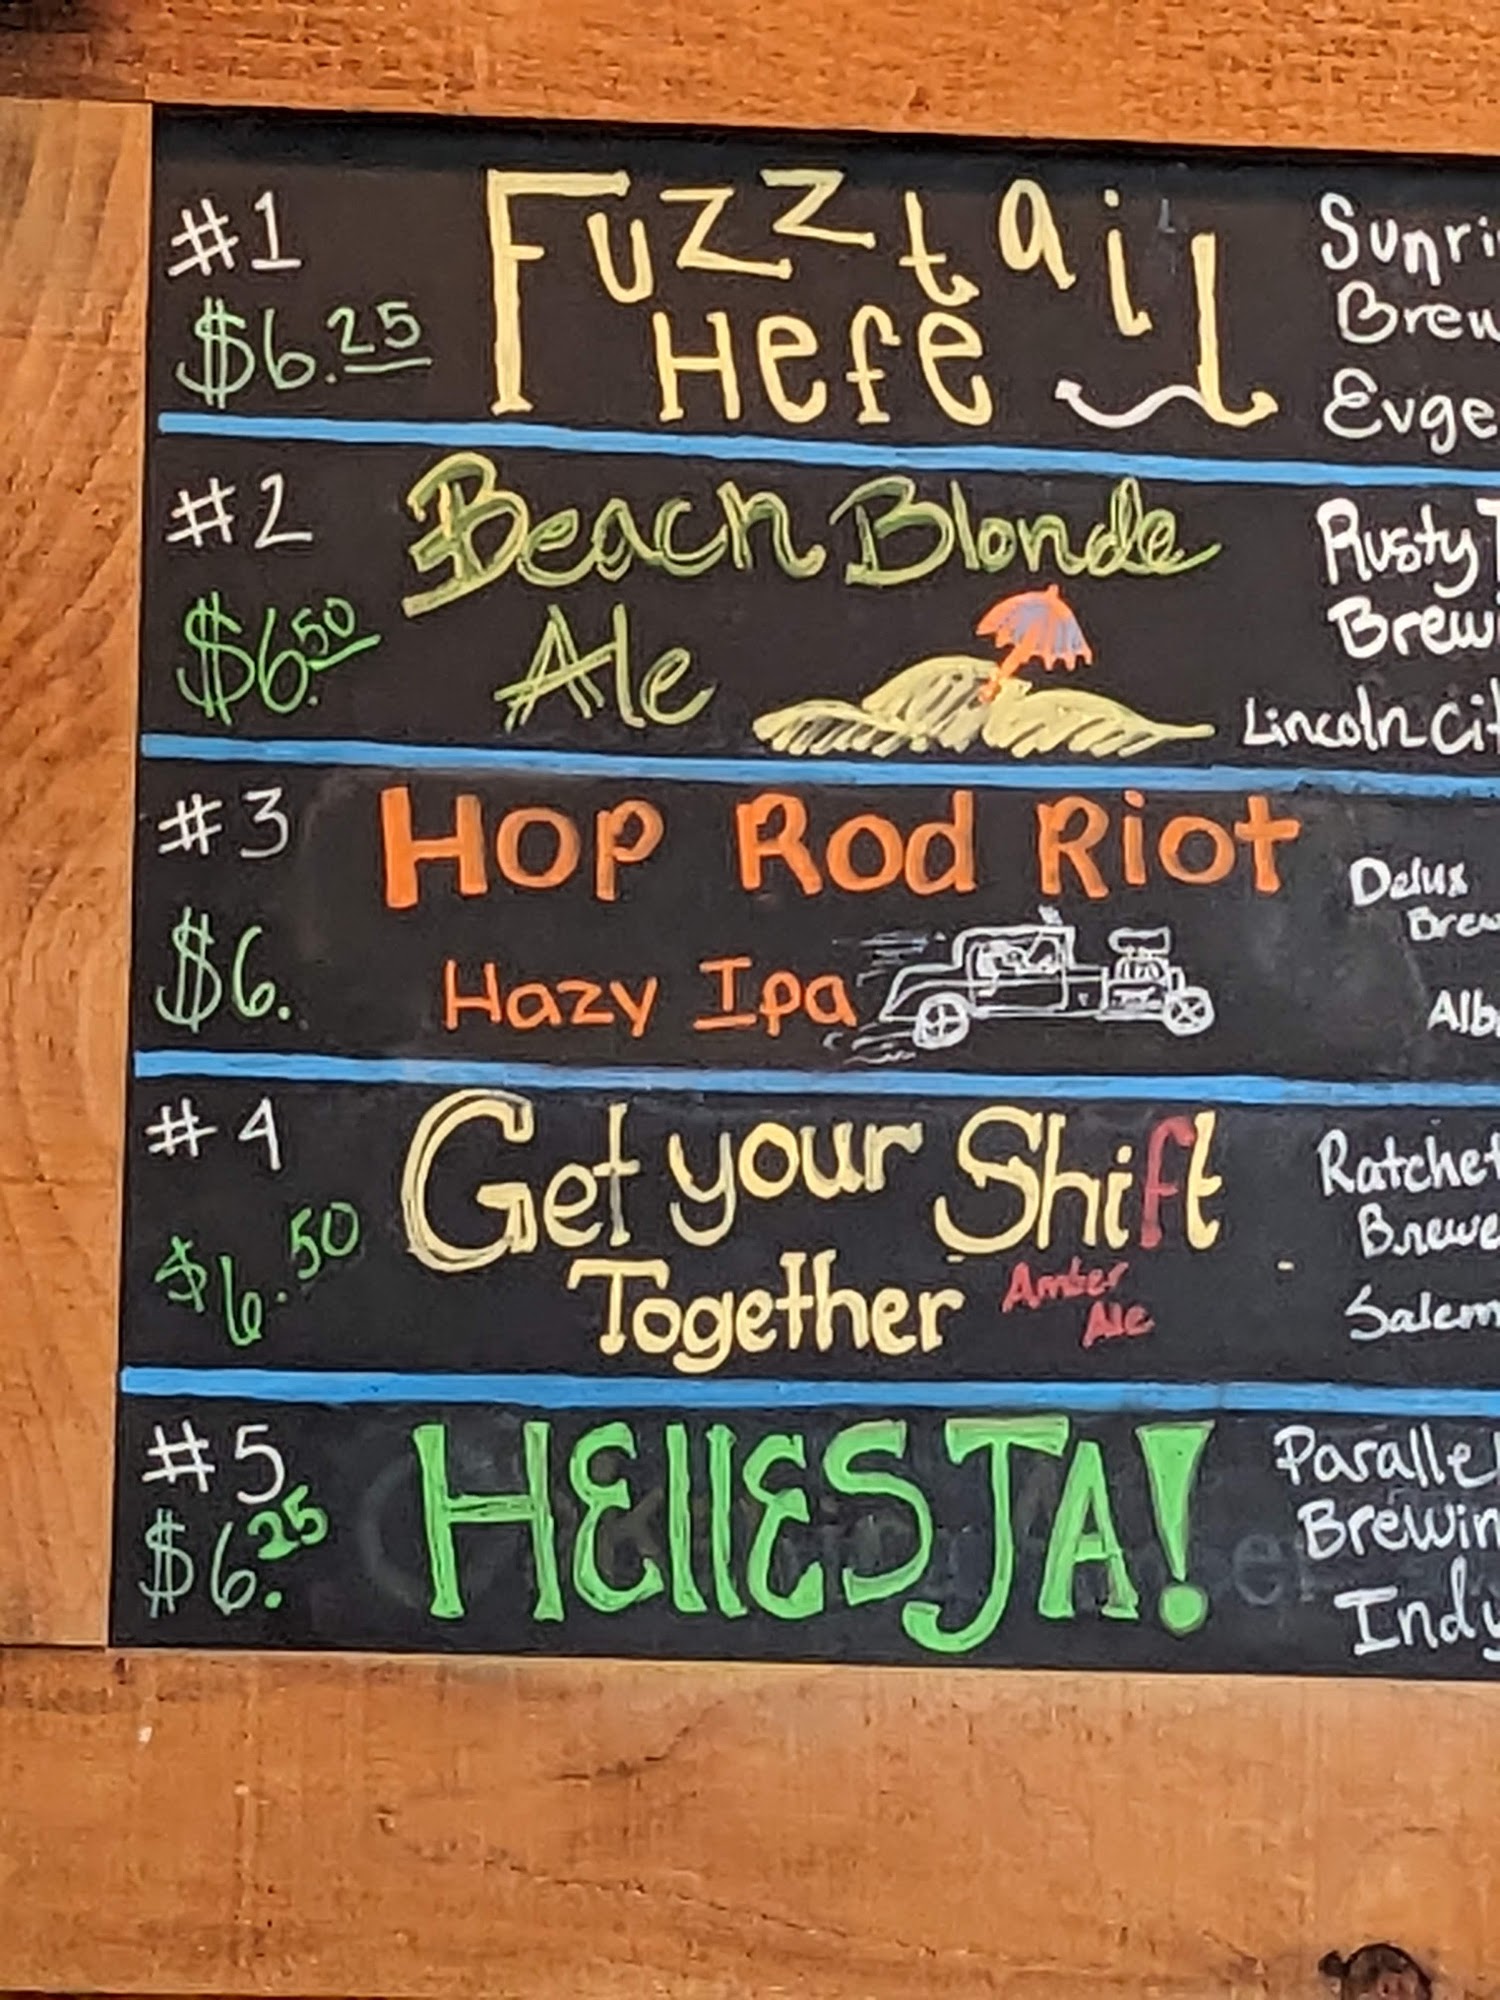 #1
$6.25
Fuzztail
Hefe
Sunri
Brew
Evge
#2
$6.50
Beach Blonde
Ale
Rusty T
Brewi
Lincoln Cit
#3
$6.
Hop Rod Riot
Hazy Ipa
Delux
Brew
Alb
#4
$6.50
Get your Shift
Together
Amber
Ale
Ratchet
Brewe
Salem
#5
$6.25
HEllESJA!
Paralle
Brewin
Indy